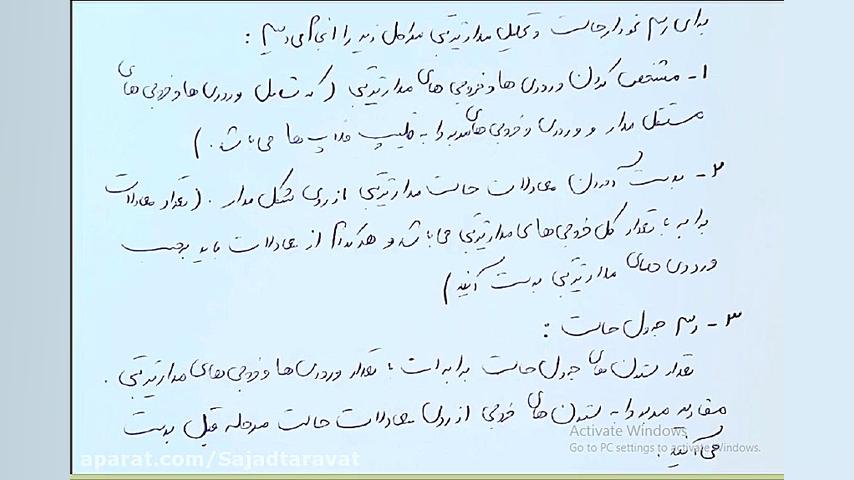 برای رسم نمودار حالت و تحلیل مدار ترتیبی مراحل زیر را انجام می‌دهیم :
۱- مشخص کردن ورودی ها و خروجی های مدار ترتیبی ( که شامل ورودی ها و خروجی های
مستقل مدار و ورودی و خروجی های مربوط به فلیپ فلاپ ها می باشد . )
۲- بدست آوردن معادلات حالت مدار ترتیبی از روی شکل مدار . ( تعداد معادلات
برابر با تعداد کل خروجی های مدار ترتیبی می باشد و هر کدام از معادلات باید برحسب
ورودی های مدار ترتیبی بدست آیند )
۳- رسم جدول حالت :
تعداد ستون های جدول حالت برابر است با تعداد ورودی ها و خروجی های مدار ترتیبی .
مقادیر مربوط به ستون های خروجی از روی معادلات حالت مرحله قبل بدست
می آیند .
Activate Windows
Go to PC settings to activate Windows.
aparat.com/Sajadtaravat